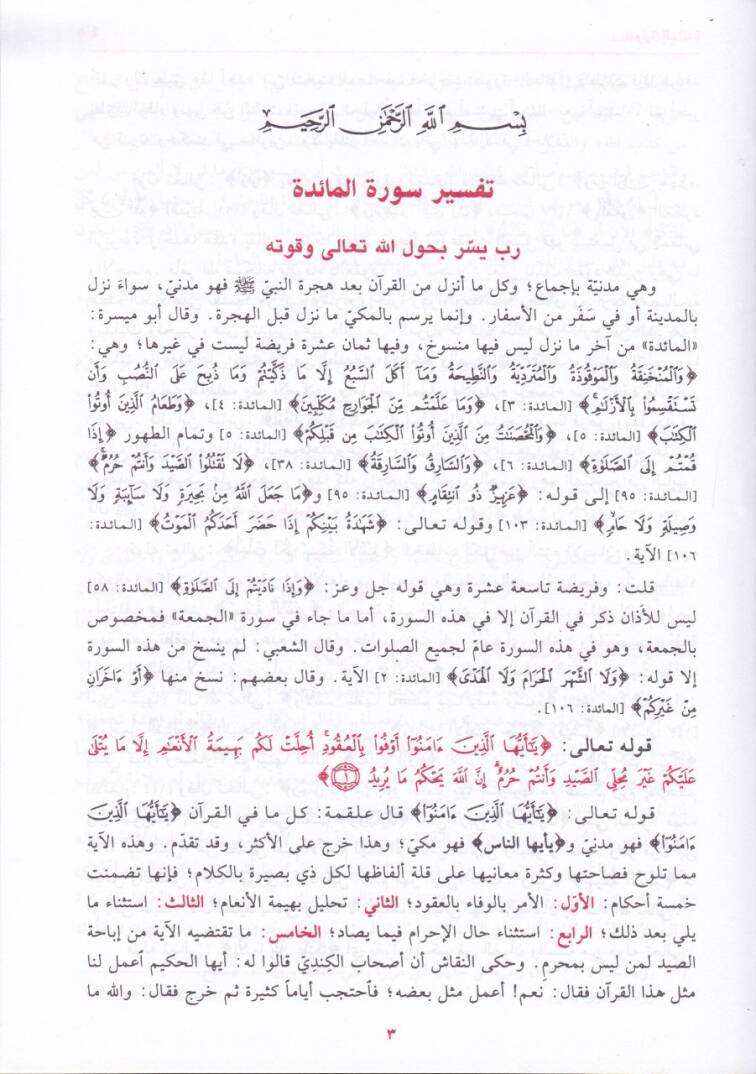 بِسْمِ اللَّهِ الرَّحْمَٰنِ الرَّحِيمِ
تفسير سورة المائدة
رب يسّر بحول الله تعالى وقوته
وهي مدنيّة بإجماع؛ وكل ما أنزل من القرآن بعد هجرة النبيّ ﷺ فهو مدنيّ، سواءً نزل
بالمدينة أو في سَفَر من الأسفار. وإنما يرسم بالمكيّ ما نزل قبل الهجرة. وقال أبو ميسرة:
«المائدة» من آخر ما نزل ليس فيها منسوخ، وفيها ثمان عشرة فريضة ليست في غيرها؛ وهي:
﴿وَالْمُنْخَنِقَةُ وَالْمَوْقُوذَةُ وَالْمُتَرَدِّيَةُ وَالنَّطِيحَةُ وَمَا أَكَلَ السَّبُعُ إِلَّا مَا ذَكَّيْتُمْ وَمَا ذُبِحَ عَلَى النُّصُبِ وَأَن
تَسْتَقْسِمُوا بِالْأَزْلَٰمِ﴾ [المائدة: ٣]، ﴿وَمَا عَلَّمْتُم مِّنَ الْجَوَارِحِ مُكَلِّبِينَ﴾ [المائدة: ٤]، ﴿وَطَعَامُ الَّذِينَ أُوتُوا
الْكِتَٰبَ﴾ [المائدة: ٥]، ﴿وَالْمُحْصَنَٰتُ مِنَ الَّذِينَ أُوتُوا الْكِتَٰبَ مِن قَبْلِكُمْ﴾ [المائدة: ٥] وتمام الطهور ﴿إِذَا
قُمْتُمْ إِلَى الصَّلَوٰةِ﴾ [المائدة: ٦]، ﴿وَالسَّارِقُ وَالسَّارِقَةُ﴾ [المائدة: ٣٨]، ﴿لَا تَقْتُلُوا الصَّيْدَ وَأَنتُمْ حُرُمٌ﴾
[المائدة: ٩٥] إلى قوله: ﴿عَزِيزٌ ذُو انتِقَامٍ﴾ [المائدة: ٩٥] و﴿مَا جَعَلَ اللَّهُ مِنْ بَحِيرَةٍ وَلَا سَآئِبَةٍ وَلَا
وَصِيلَةٍ وَلَا حَامٍ﴾ [المائدة: ١٠٣] وقوله تعالى: ﴿شَهَٰدَةُ بَيْنِكُمْ إِذَا حَضَرَ أَحَدَكُمُ الْمَوْتُ﴾ [المائدة:
١٠٦] الآية.
قلت: وفريضة تاسعة عشرة وهي قوله جل وعز: ﴿وَإِذَا نَادَيْتُمْ إِلَى الصَّلَوٰةِ﴾ [المائدة: ٥٨]
ليس للأذان ذكر في القرآن إلا في هذه السورة، أما ما جاء في سورة «الجمعة» فمخصوص
بالجمعة، وهو في هذه السورة عامّ لجميع الصلوات. وقال الشعبي: لم ينسخ من هذه السورة
إلا قوله: ﴿وَلَا الشَّهْرَ الْحَرَامَ وَلَا الْهَدْىَ﴾ [المائدة: ٢] الآية. وقال بعضهم: نسخ منها ﴿أَوْ ءَاخَرَانِ
مِنْ غَيْرِكُمْ﴾ [المائدة: ١٠٦].
قوله تعالى: ﴿يَٰٓأَيُّهَا الَّذِينَ ءَامَنُوٓا أَوْفُوا بِالْعُقُودِ أُحِلَّتْ لَكُم بَهِيمَةُ الْأَنْعَٰمِ إِلَّا مَا يُتْلَىٰ
عَلَيْكُمْ غَيْرَ مُحِلِّى الصَّيْدِ وَأَنتُمْ حُرُمٌ إِنَّ اللَّهَ يَحْكُمُ مَا يُرِيدُ ١﴾
قوله تعالى: ﴿يَٰٓأَيُّهَا الَّذِينَ ءَامَنُوٓا﴾ قال علقمة: كل ما في القرآن ﴿يَٰٓأَيُّهَا الَّذِينَ
ءَامَنُوٓا﴾ فهو مدنيّ و﴿يأيها الناس﴾ فهو مكيّ؛ وهذا خرج على الأكثر، وقد تقدّم. وهذه الآية
مما تلوح فصاحتها وكثرة معانيها على قلة ألفاظها لكل ذي بصيرة بالكلام؛ فإنها تضمنت
خمسة أحكام: الأوّل: الأمر بالوفاء بالعقود؛ الثاني: تحليل بهيمة الأنعام؛ الثالث: استثناء ما
يلي بعد ذلك؛ الرابع: استثناء حال الإحرام فيما يصاد؛ الخامس: ما تقتضيه الآية من إباحة
الصيد لمن ليس بمحرِم. وحكى النقاش أن أصحاب الكِنديّ قالوا له: أيها الحكيم أعمل لنا
مثل هذا القرآن فقال: نعم! أعمل مثل بعضه؛ فأحتجب أياماً كثيرة ثم خرج فقال: والله ما
٣